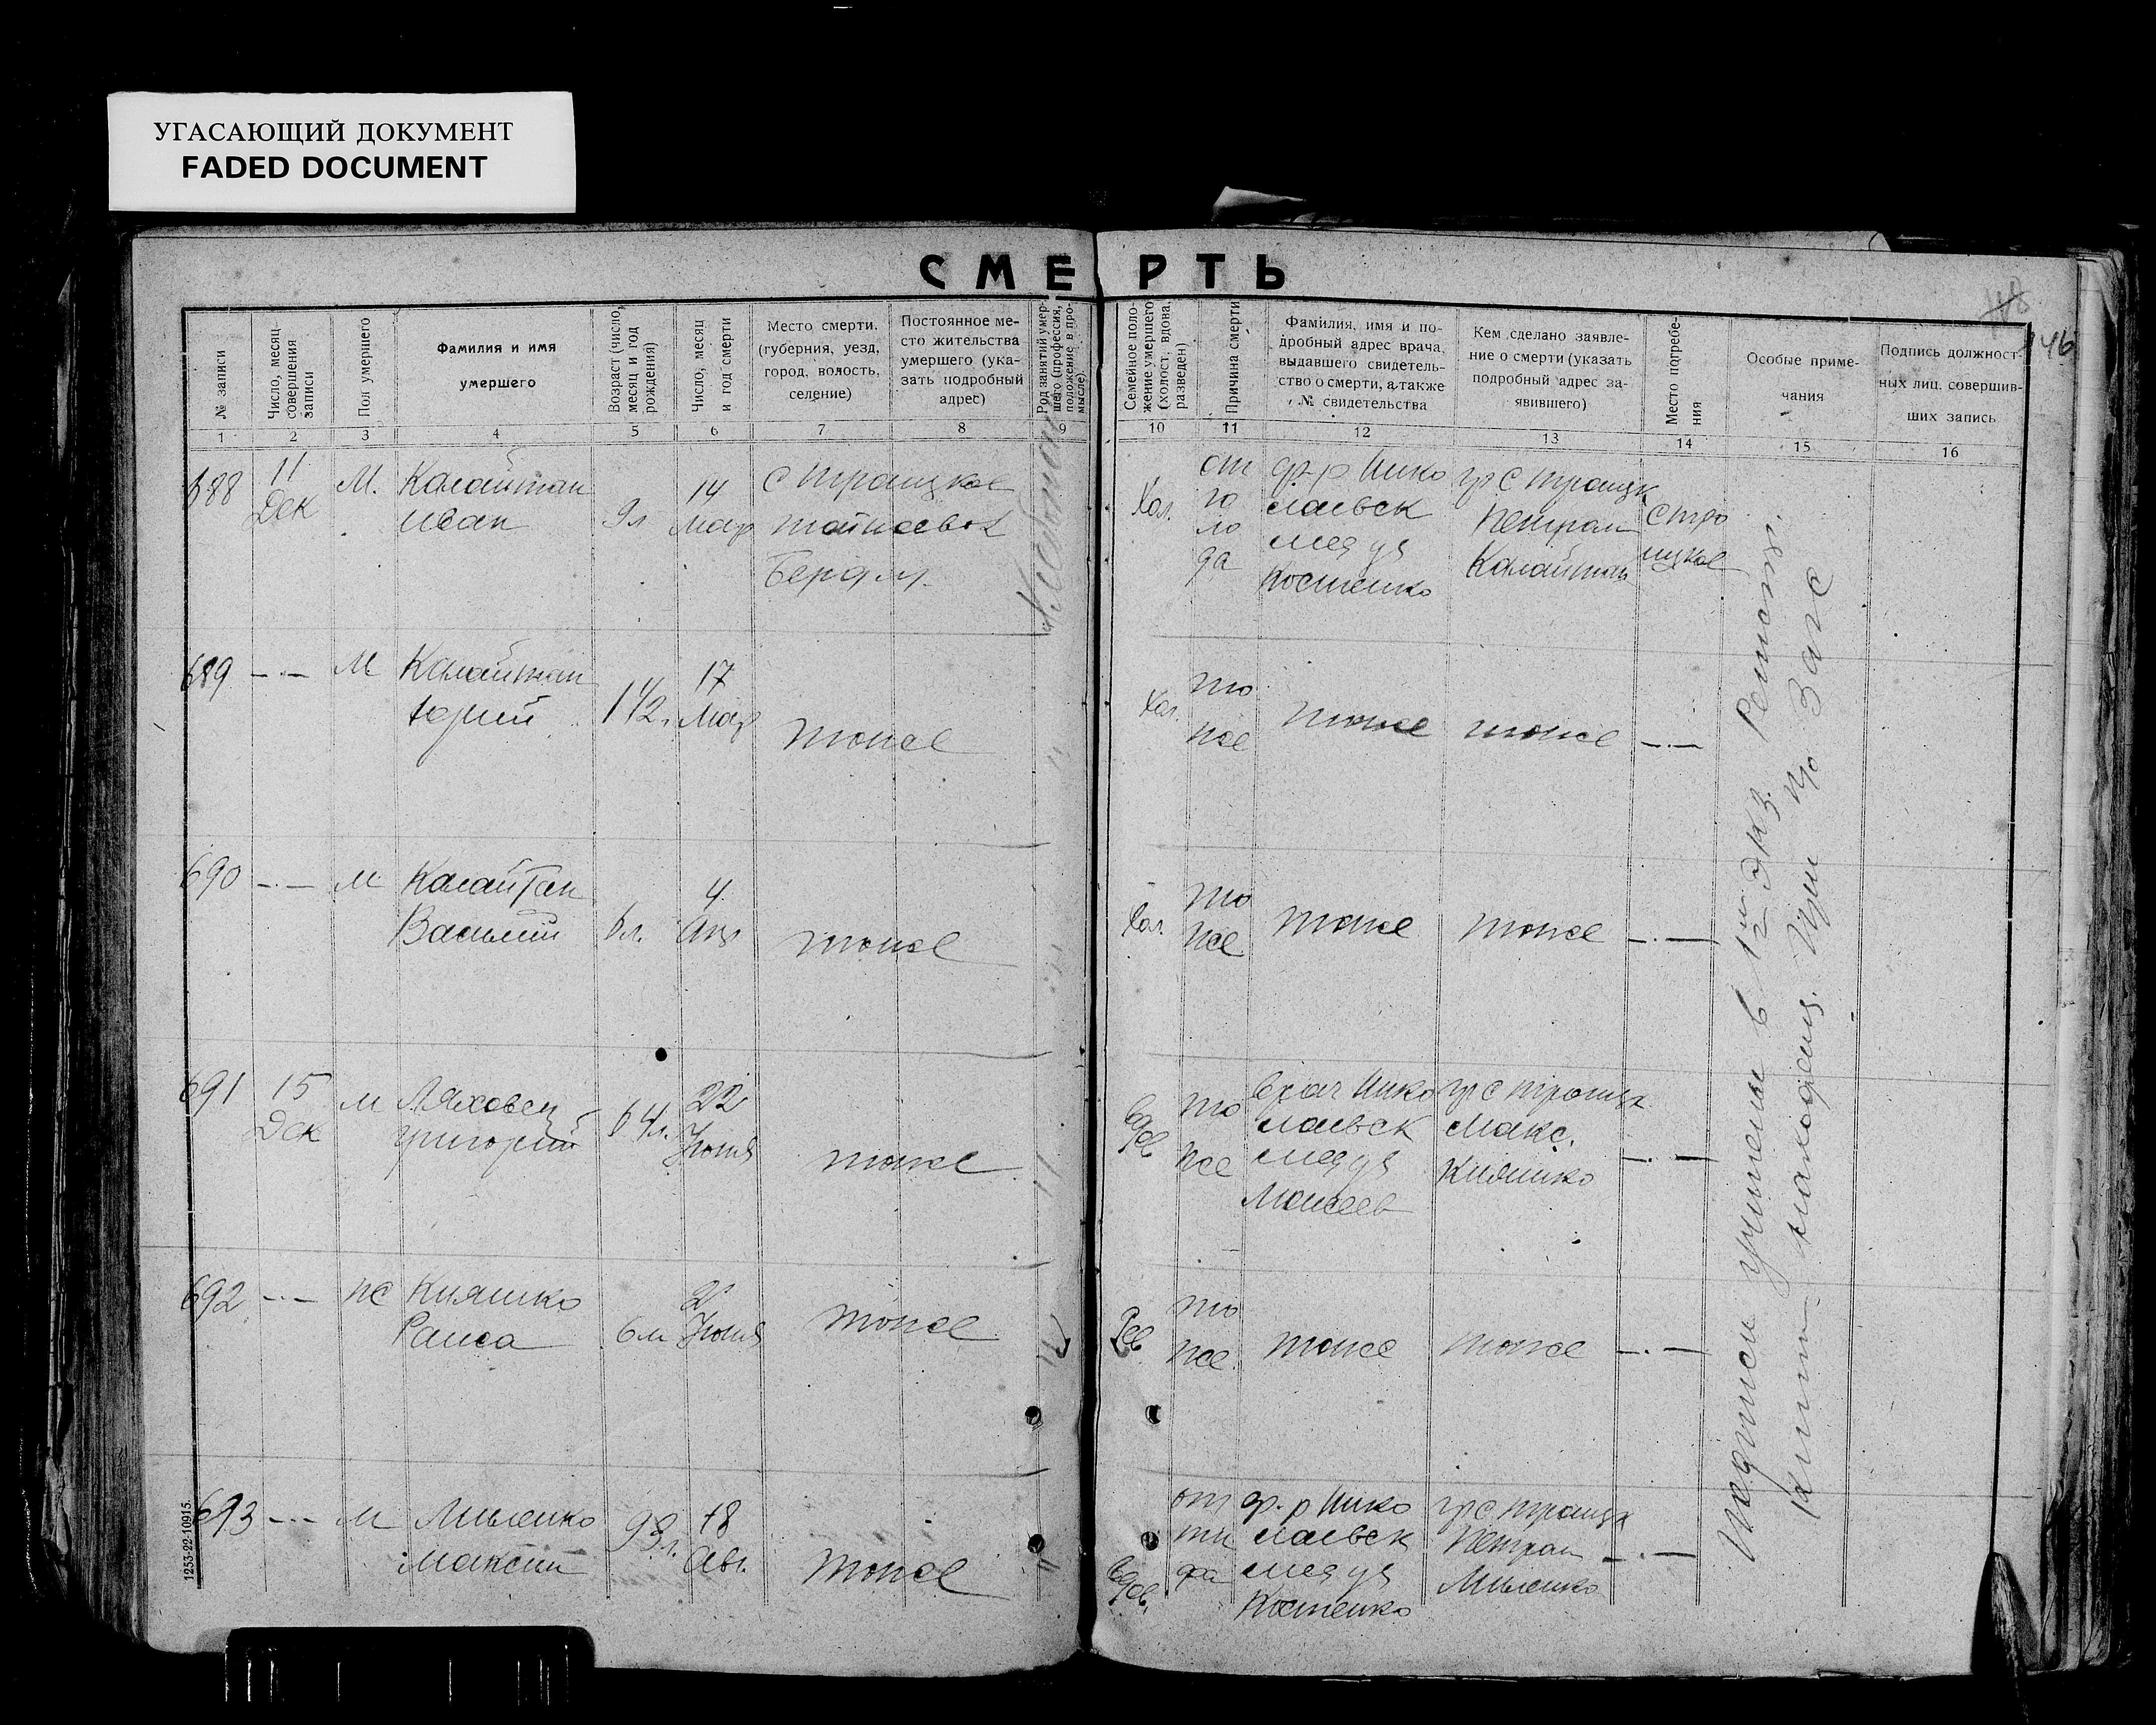 УГАСАЮЩИЙ ДОКУМЕНТ
FADED DOCUMENT
СМЕРТЬ
48
146
№ записи
Число, месяц
совершения
записи
Пол умершего
Фамилия и имя
умершего
Возраст (число,
месяц и год
рождения)
Число, месяц
и год смерти
Место смерти.
(губерния, уезд,
город, волость,
селение)
Постоянное ме-
сто жительства
умершего (ука-
зать подробный
адрес)
Род занятий умер-
шего (профессия,
положение в про-
мысле).
Семейное поло-
жение умершего
(холост, вдова,
разведен)
Причина смерти
Фамилия, имя и по-
дробный адрес врача,
выдавшего свидетель-
ство о смерти, а также
№ свидетельства
Кем сделано заявле-
ние о смерти (указать
подробный адрес за-
явившего)
Место погребе-
ния
Особые приме-
чания
Подпись должност-
ных лиц, совершив-
ших запись
1 2 3 4 5 6 7 8 9 10 11 12 13 14 15 16
688
11
Дек
М.
Калайтан
Иван
9 л
14
Мар
с Троицкое
Бердм.
Хол.
от
го
ло
да
ф-р Нико
лаевск
мед уч
Костенко
гр с Троицк
Петром
Калайтан
с Тро
ицкое
689 -·- М
Калайтан
Юрий
1 1/2.
17
Мар
тоже
Хол.
то
же
тоже
тоже
-·-
690 -·- М
Калайтан
Василий
6 л.
4
Апр
тоже
Хол.
то
же
тоже
тоже
-·-
691
15
Дек
М
Ляховец
Григорий
64 л.
22
Июня
тоже
Вдов
то
же
врач Нико
лаевск
мед уч
Моисеев
гр с Троицк
Макс.
Кияшко
-·-
692 -·- ж
Кияшко
Раиса
6 м
2
Июня
тоже
Дев
то
же
тоже
тоже
-·-
693 -·- М
Миленко
Максим
93 л.
18
Авг.
тоже
Вдов.
от
ти
фа
ф-р Нико
лаевск
мед уч
Костенко
гр с Троицк
Петром
Миленко
-·-
Подписи учинены в 1м экз.
книги находящ. при
Загс
1253-22-10915.